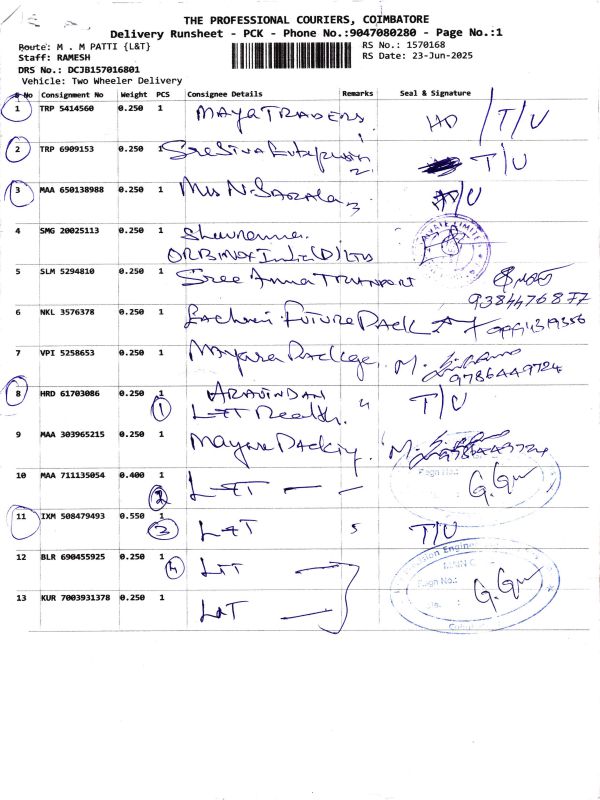 THE PROFESSIONAL COURIERS, COIMBATORE
Delivery Runsheet - PCK - Phone No.:9047080280 - Page No.:1
Route: M . M PATTI {L&T}
RS No.: 1570168
Staff: RAMESH
RS Date: 23-Jun-2025
DRS No.: DCJB157016801
Vehicle: Two Wheeler Delivery
No Consignment No Weight PCS Consignee Details Remarks Seal & Signature
1 TRP 5414560 0.250 1 Maya TRADERS 1 HD / T/U
2 TRP 6909153 0.250 1 2 T/U
3 MAA 650138988 0.250 1 3 T/U
4 SMG 20025113 0.250 1
5 SLM 5294810 0.250 1 Sree Anna TRANSPORT
9384476877
6 NKL 3576378 0.250 1 FUTURE PACK
7 VPI 5258653 0.250 1 M.
9786449724
8 HRD 61703086 0.250 1 ARAVINDAN 4 T/U
1 L&T
9 MAA 303965215 0.250 1 M. 9786449724
Regn No.:
10 MAA 711135054 0.400 1 L&T G.
2
11 IXM 508479493 0.550 1 L&T 5 T/U
3
12 BLR 690455925 0.250 1 L&T
4
Regn No.: G.
13 KUR 7003931378 0.250 1 L&T